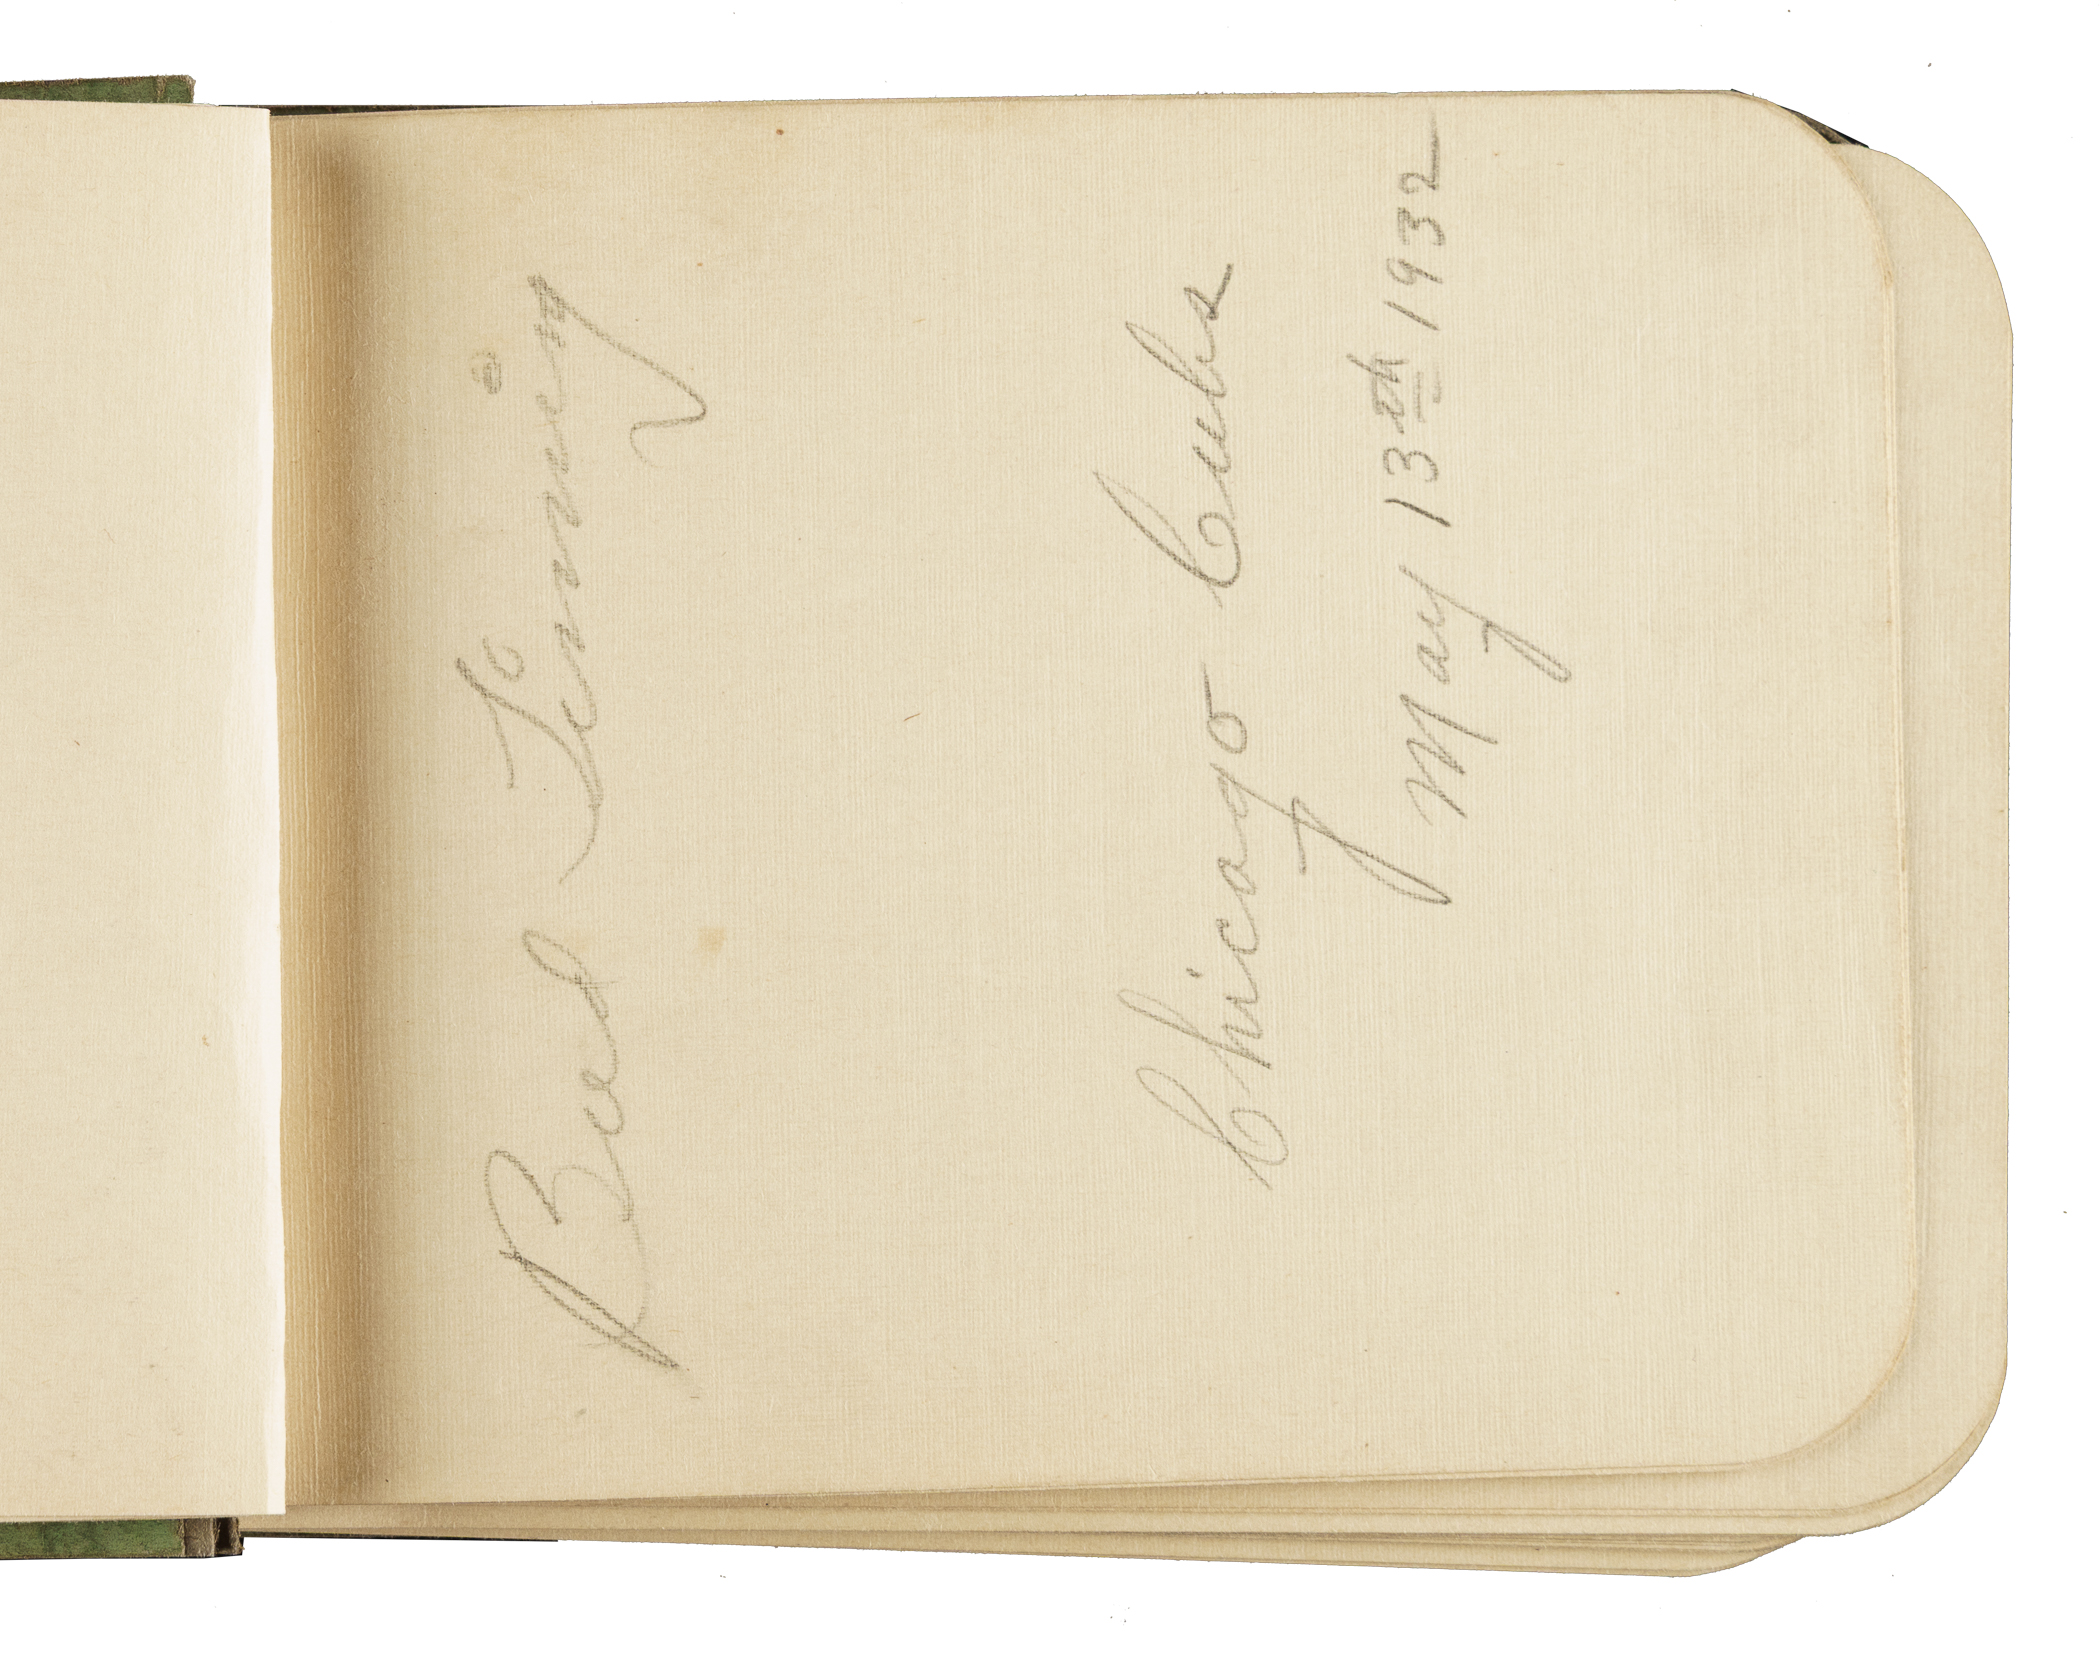 Bud Tinning
Chicago Cubs
May 13th 1932